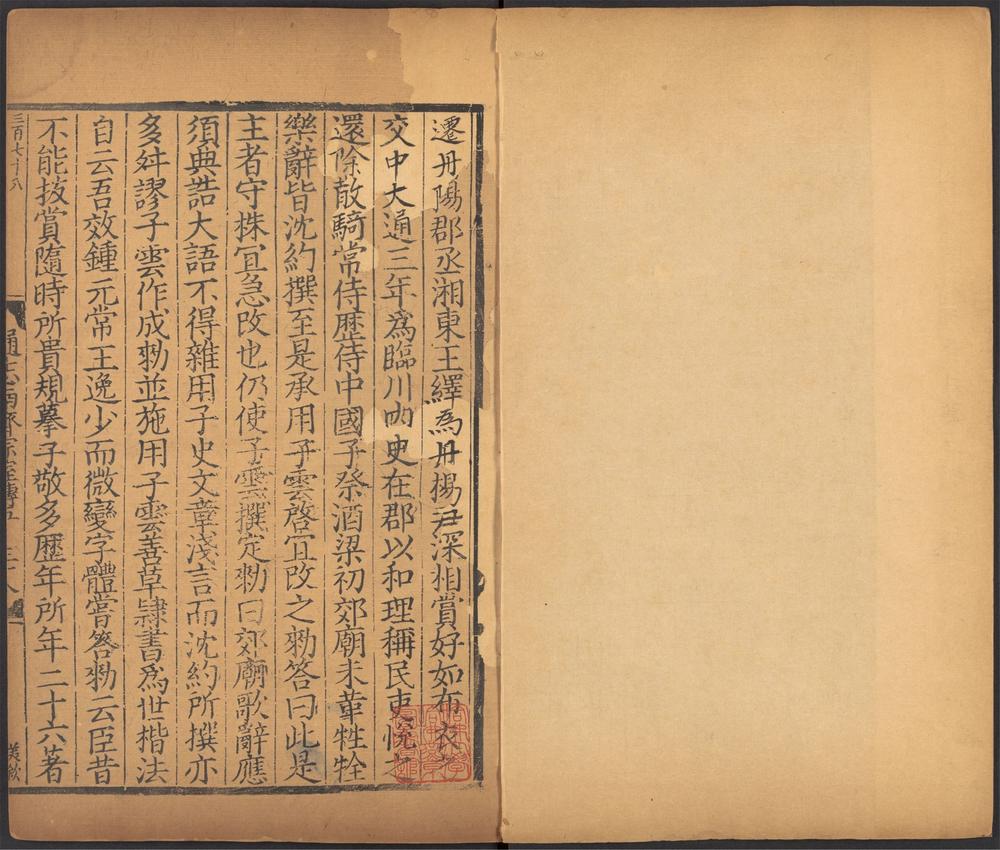 遷丹陽郡丞湘東王繹爲丹揚尹深相賞好如布衣之
交中大通三年爲臨川内史在郡以和理稱民吏悅之
還除散騎常侍歷侍中國子祭酒梁初郊廟未革牲牷
樂辭皆沈約撰至是承用子雲啓宜改之勑答曰此是
主者守株宜急改也仍使子雲撰定勑曰郊廟歌辭應
須典誥大語不得雜用子史文章淺言而沈約所撰亦
多舛謬子雲作成勑並施用子雲善草隷書爲世楷法
自云吾效鍾元常王逸少而微變字體嘗答勑云臣昔
不能拔賞隨時所貴規摹子敬多歷年所年二十六著
三百七十八